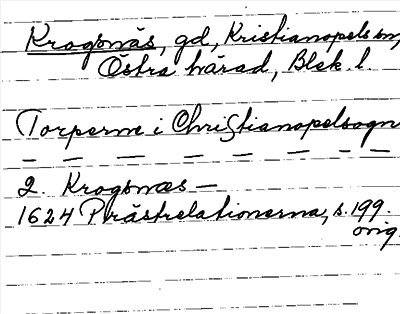 Krogsnäs, gd, Kristianopels sn,
Östra härad, Blek. l.
Torperne i Christianopelsogn
— — — — — — — —
2. Krogsnæs —
1624 Prästrelationerna, s. 199.
orig.